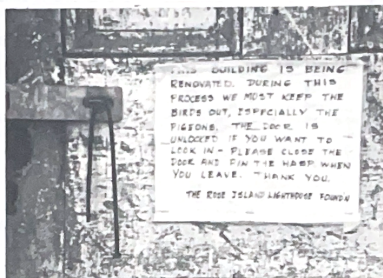 THIS BUILDING IS BEING
RENOVATED. DURING THIS
PROCESS WE MUST KEEP THE
BIRDS OUT, ESPECIALLY THE
PIGEONS. THE DOOR IS
UNLOCKED IF YOU WANT TO
LOOK IN - PLEASE CLOSE THE
DOOR AND PIN THE HASP WHEN
YOU LEAVE. THANK YOU.
THE ROSE ISLAND LIGHTHOUSE FOUNDN